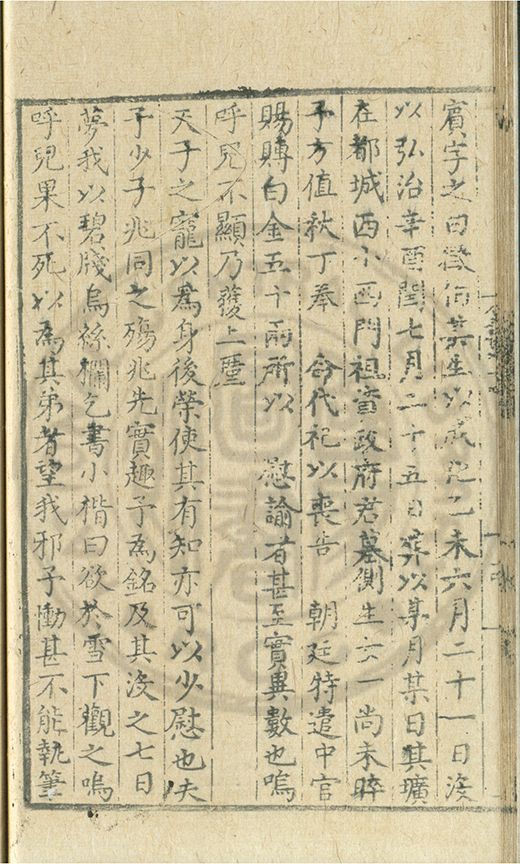 賓字之曰徵伯其生以成化乙未六月二十一日沒
以弘治辛酉閏七月二十五日葬以某月某日其壙
在都城西小西門祖資政府君墓側生女一尚未晬
予方值秋丁奉 命代祀以喪告 朝廷特遣中官
賜賻白金五十兩所以 慰諭者甚至實異數也嗚
呼兒不顯乃獲上塵
天子之寵以為身後榮使其有知亦可以少慰也夫
予少子兆同之殤兆先實趣予為銘及其沒之七日
夢我以碧牋烏絲欄乞書小楷曰欲於雪下觀之嗚
呼兒果不死以為其弟者望我邪予慟甚不能執筆